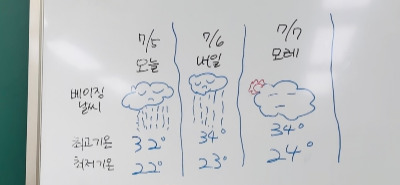 7/5 7/6 7/7
오늘 내일 모레
베이징
날씨
최고기온 32° 34° 34°
최저기온 22° 23° 24°